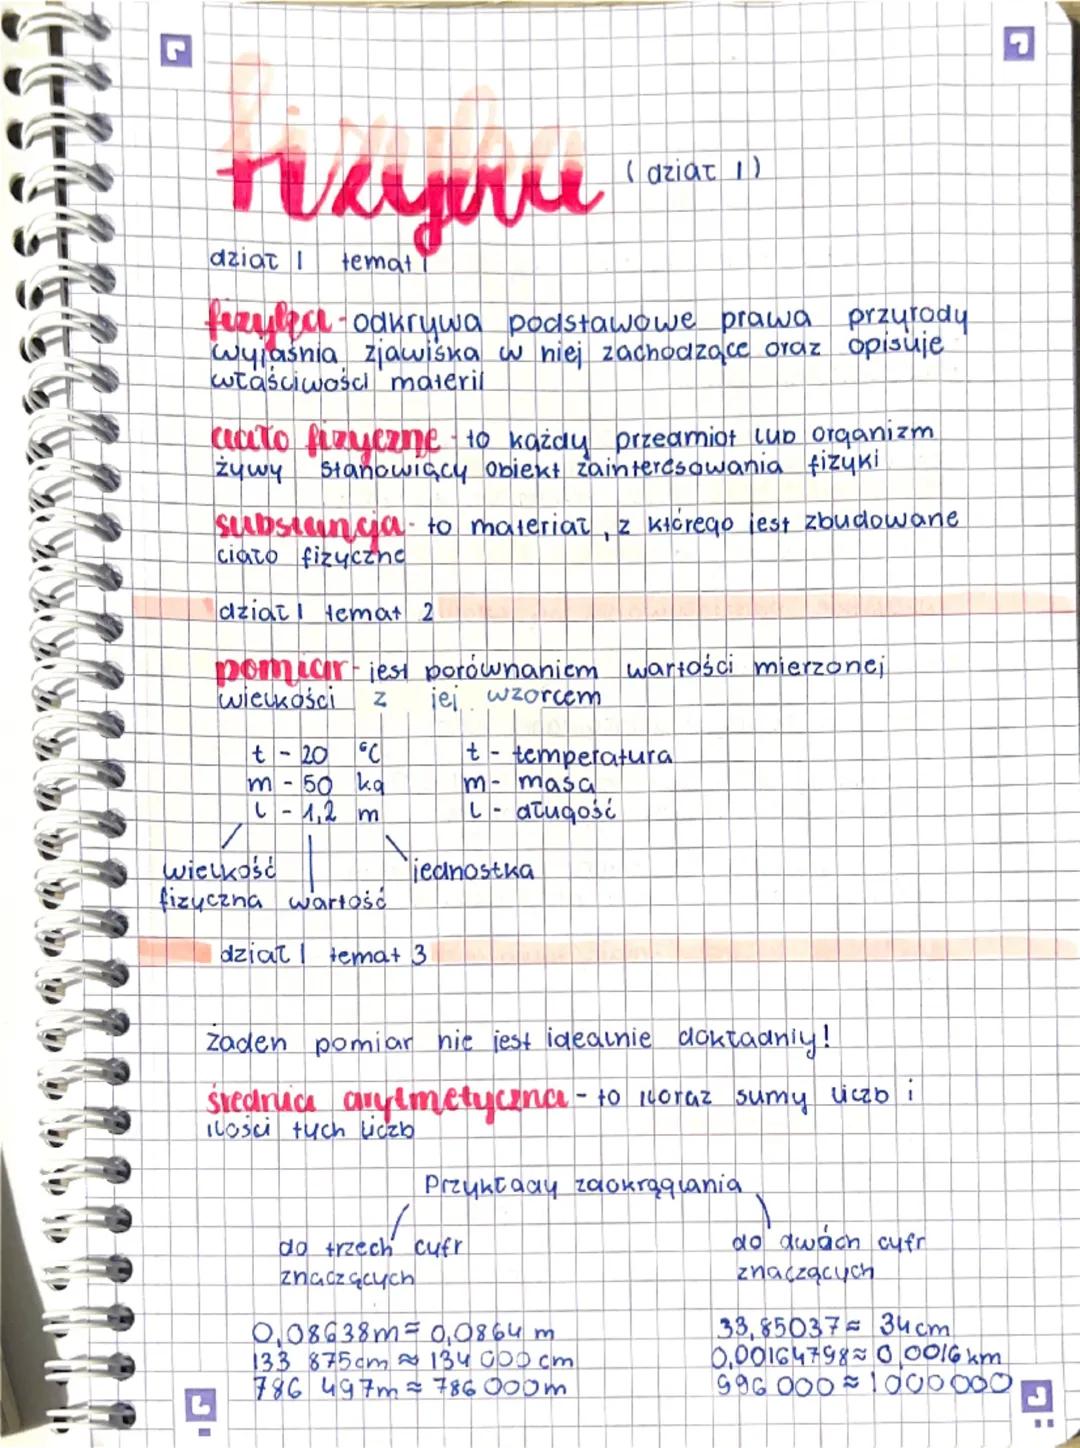 fizyka (dział 1)
dział 1 temat 1
fizyka - odkrywa podstawowe prawa przyrody
wyjaśnia zjawiska w niej zachodzące oraz opisuje
właściwości materii
ciało fizyczne - to każdy przedmiot lub organizm
żywy stanowiący obiekt zainteresowania fizyki
substancja - to materiał, z którego jest zbudowane
ciało fizyczne
dział 1 temat 2
pomiar - jest porównaniem wartości mierzonej
wielkości z jej wzorcem
t - 20 °C t - temperatura
m - 50 kg m - masa
l - 1,2 m l - długość
wielkość jednostka
fizyczna wartość
dział 1 temat 3
żaden pomiar nie jest idealnie dokładniy!
średnia arytmetyczna - to iloraz sumy liczb i
ilości tych liczb
Przykłady zaokrąglania
do trzech cyfr do dwóch cyfr
znaczących znaczących
0,08638m ≈ 0,0864 m 33,85037 ≈ 34cm
133 875cm ≈ 134 000 cm 0,00164798 ≈ 0,0016 km
786 497m ≈ 786 000m 996 000 ≈ 1000000